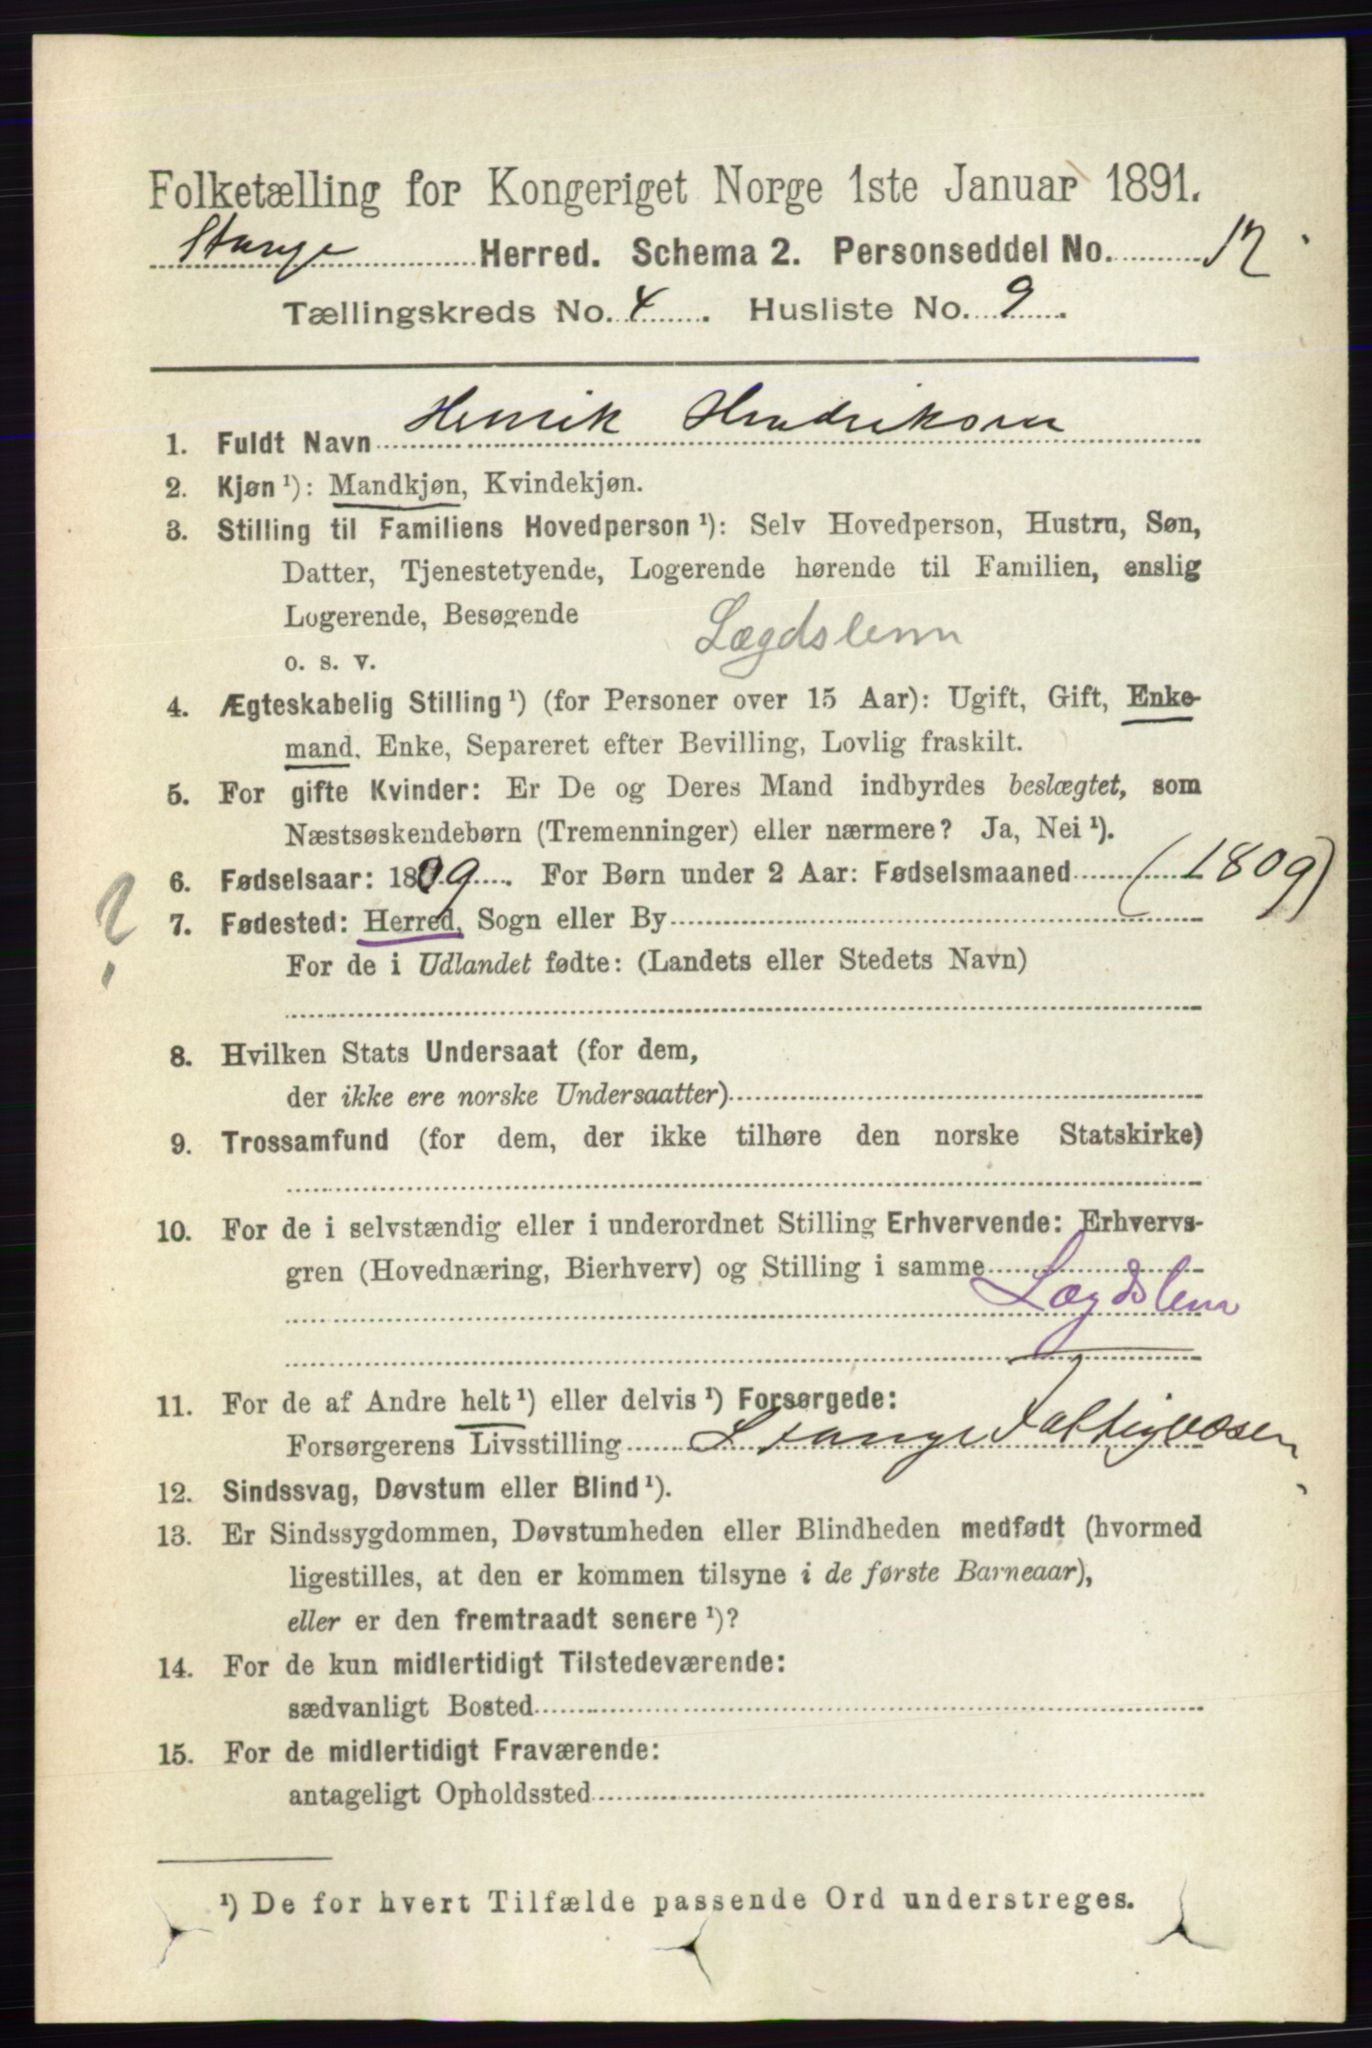 Folketælling for Kongeriget Norge 1ste Januar 1891.
Stange Herred. Schema 2. Personseddel No. 12
Tællingskreds No. 4. Husliste No. 9.
1. Fuldt Navn Henrik Hendriksen
2. Kjøn ¹): Mandkjøn, Kvindekjøn.
3. Stilling til Familiens Hovedperson ¹): Selv Hovedperson, Hustru, Søn,
Datter, Tjenestetyende, Logerende hørende til Familien, enslig
Logerende, Besøgende
o. s. v. Lægdslem
4. Ægteskabelig Stilling ¹) (for Personer over 15 Aar): Ugift, Gift, Enke-
mand, Enke, Separeret efter Bevilling, Lovlig fraskilt.
5. For gifte Kvinder: Er De og Deres Mand indbyrdes beslægtet, som
Næstsøskendebørn (Tremenninger) eller nærmere? Ja, Nei ¹).
6. Fødselsaar: 1809. For Børn under 2 Aar: Fødselsmaaned (1809)
?
7. Fødested: Herred, Sogn eller By
For de i Udlandet fødte: (Landets eller Stedets Navn)
8. Hvilken Stats Undersaat (for dem,
der ikke ere norske Undersaatter)
9. Trossamfund (for dem, der ikke tilhøre den norske Statskirke)
10. For de i selvstændig eller i underordnet Stilling Erhvervende: Erhvervs-
gren (Hovednæring, Bierhverv) og Stilling i samme
Lægdslem
11. For de af Andre helt ¹) eller delvis ¹) Forsørgede:
Forsørgerens Livsstilling Stange Fattigvæsen
12. Sindssvag, Døvstum eller Blind ¹).
13. Er Sindssygdommen, Døvstumheden eller Blindheden medfødt (hvormed
ligestilles, at den er kommen tilsyne i de første Barneaar),
eller er den fremtraadt senere ¹)?
14. For de kun midlertidigt Tilstedeværende:
sædvanligt Bosted
15. For de midlertidigt Fraværende:
antageligt Opholdssted
¹) De for hvert Tilfælde passende Ord understreges.